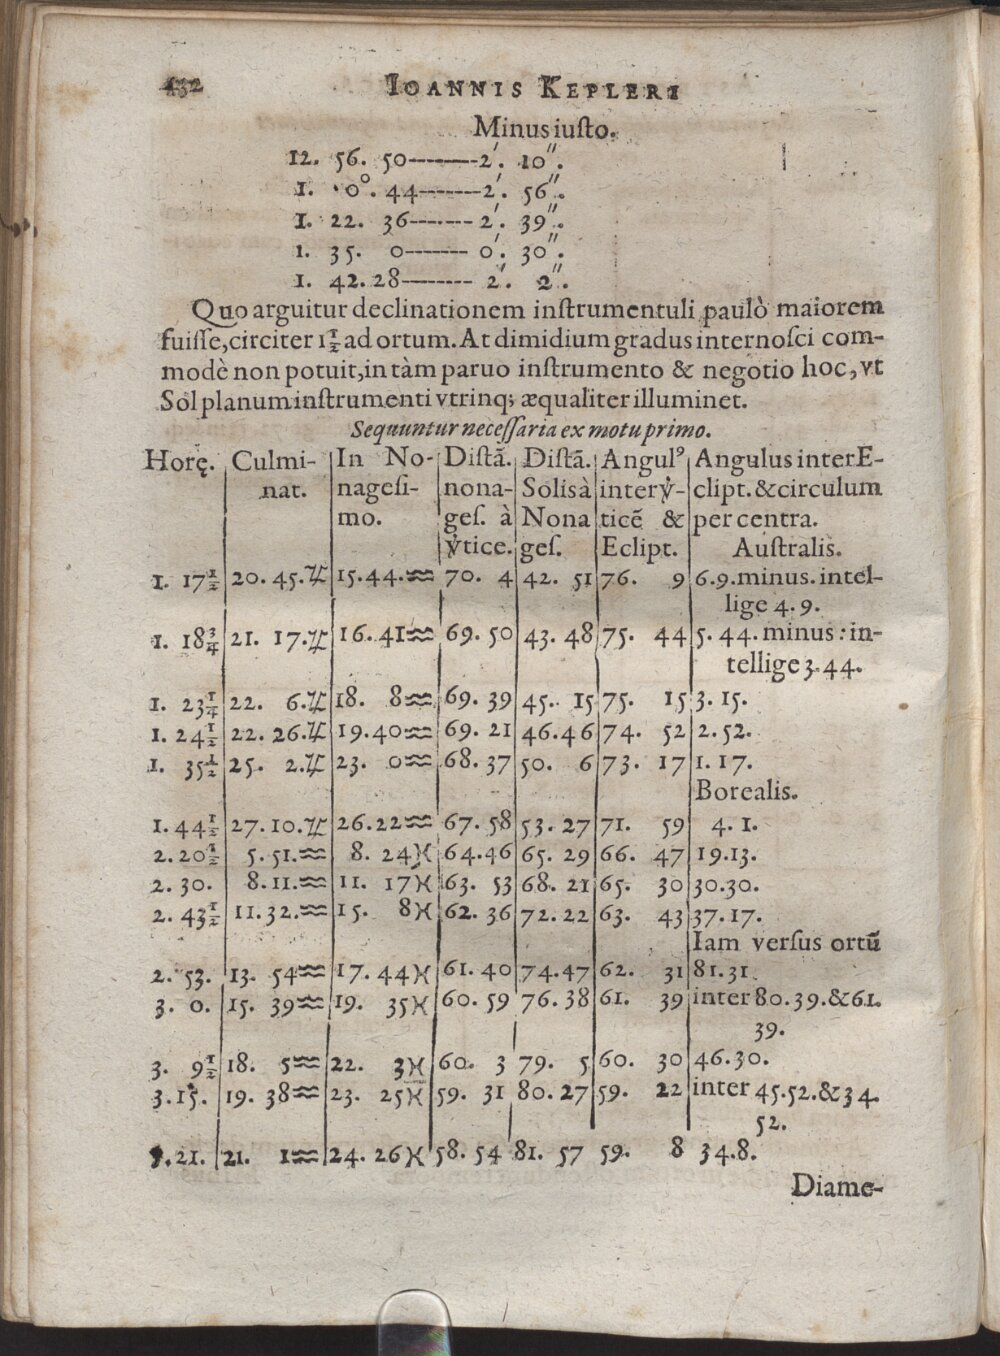 432 IOANNIS KEPLERI
Minus iuſto.
12. 56. 50--------2′. 10″.
1. 0°. 44-------2′. 56″.
1. 22. 36------- 2′. 39″.
1. 35. 0------- 0′. 30″.
1. 42. 28-------- 2′. 2″.
Quo arguitur declinationem inſtrumentuli paulò maiorem
fuiſſe, circiter 1½ ad ortum. At dimidium gradus internoſci com-
modè non potuit, in tàm paruo inſtrumento & negotio hoc, vt
Sol planum inſtrumenti vtrinq; æqualiter illuminet.
Sequuntur neceſſaria ex motu primo.
Horę. | Culmi- | In No- | Diſtã. | Diſtã. | Angul⁹ | Angulus inter E-
nat. | nageſi- | nona- | Solis à | inter v̓- | clipt. & circulum
mo. | geſ. à | Nona | ticẽ & | per centra.
v̓tice. | geſ. | Eclipt. | Auſtralis.
1. 17½ | 20. 45. ♑ | 15. 44. ♒ | 70. 4 | 42. 51 | 76. 9 | 6. 9. minus. intel-
lige 4. 9.
1. 18¾ | 21. 17. ♑ | 16. 41 ♒ | 69. 50 | 43. 48 | 75. 44 | 5. 44. minus: in-
tellige 3. 44.
1. 23¼ | 22. 6. ♑ | 18. 8 ♒ | 69. 39 | 45. 15 | 75. 15 | 3. 15.
1. 24½ | 22. 26. ♑ | 19. 40 ♒ | 69. 21 | 46. 46 | 74. 52 | 2. 52.
1. 35½ | 25. 2. ♑ | 23. 0 ♒ | 68. 37 | 50. 6 | 73. 17 | 1. 17.
Borealis.
1. 44½ | 27. 10. ♑ | 26. 22 ♒ | 67. 58 | 53. 27 | 71. 59 | 4. 1.
2. 20½ | 5. 51. ♒ | 8. 24 ♓ | 64. 46 | 65. 29 | 66. 47 | 19. 13.
2. 30. | 8. 11. ♒ | 11. 17 ♓ | 63. 53 | 68. 21 | 65. 30 | 30. 30.
2. 43½ | 11. 32. ♒ | 15. 8 ♓ | 62. 36 | 72. 22 | 63. 43 | 37. 17.
Iam verſus ortũ
2. 53. | 13. 54 ♒ | 17. 44 ♓ | 61. 40 | 74. 47 | 62. 31 | 81. 31.
3. 0. | 15. 39 ♒ | 19. 35 ♓ | 60. 59 | 76. 38 | 61. 39 | inter 80. 39. & 61.
39.
3. 9½ | 18. 5 ♒ | 22. 3 ♓ | 60. 3 | 79. 5 | 60. 30 | 46. 30.
3. 15. | 19. 38 ♒ | 23. 25 ♓ | 59. 31 | 80. 27 | 59. 22 | inter 45. 52. & 34.
52.
21. | 21. 1 ♒ | 24. 26 ♓ | 58. 54 | 81. 57 | 59. 8 | 34. 8.
Diame-